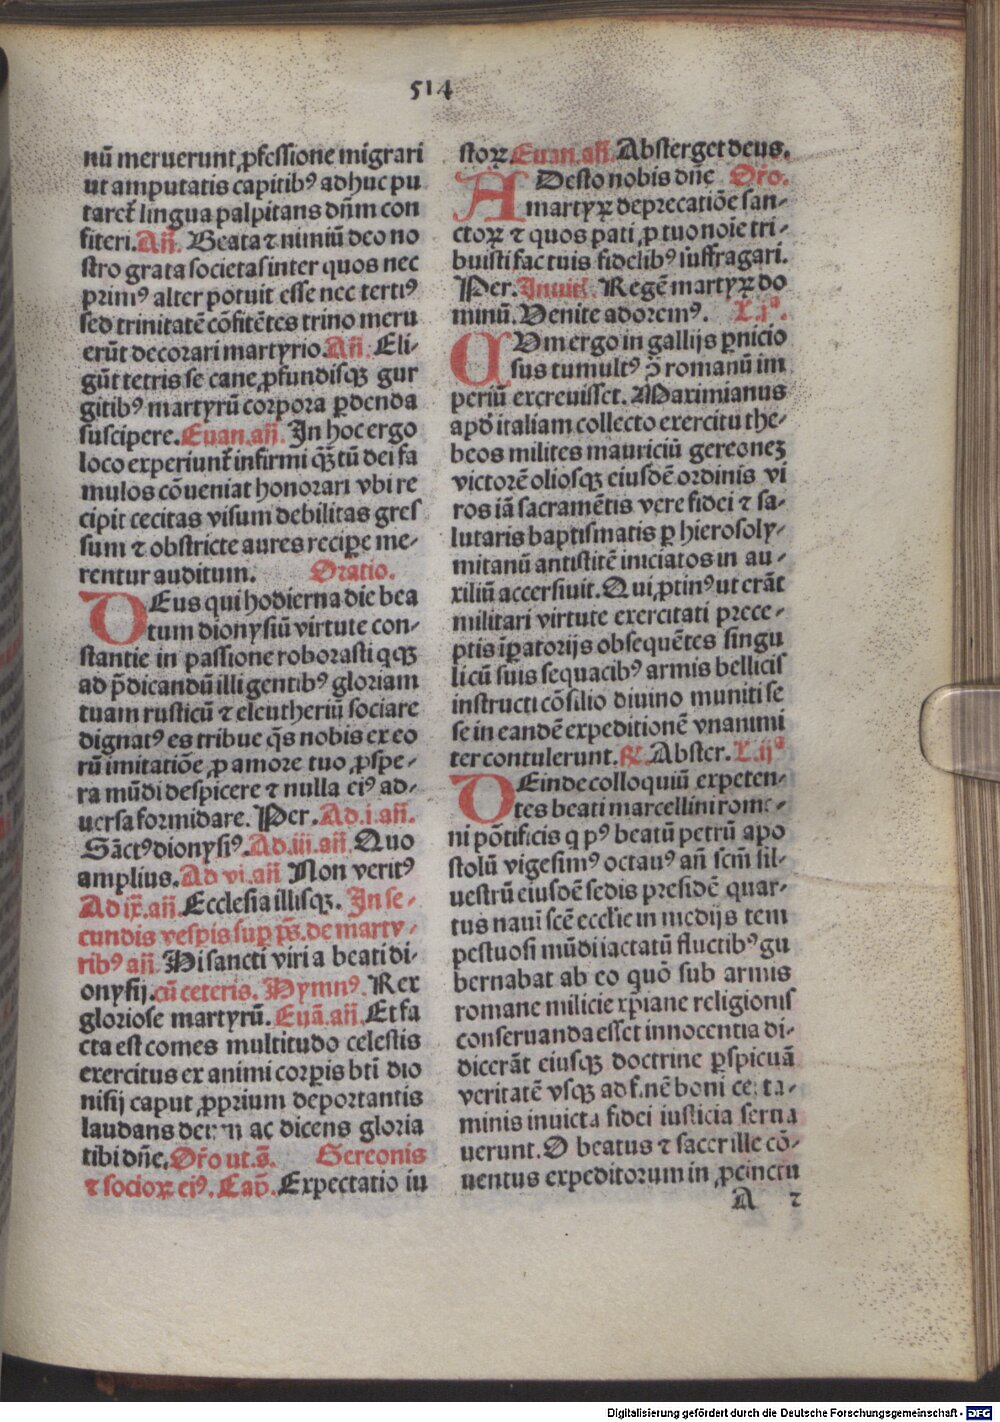 514
nū meruerunt ꝓfessione migrari
ut amputatis capitibꝰ adhuc pu
taret᷑ lingua palpitans dn̄m con
fiteri. An̄. Beata ⁊ nimiū deo no
stro grata societas inter quos nec
primꝰ alter potuit esse nec tertiꝰ
sed trinitatē cōfitētes trino meru
erūt decorari martyrio. An̄. Eli-
gūt tetris se cane ꝓfundisqꝫ gur
gitibꝰ martyrū corpora ꝑdenda
suscipere. Euan. an̄. In hoc ergo
loco experiunt᷑ infirmi qͣꝫtū dei fa
mulos cōueniat honorari vbi re
cipit cecitas visum debilitas gres
sum ⁊ obstricte aures reciꝑe me-
rentur auditum. Oratio.
DEus qui hodierna die bea
tum dionysiū virtute con-
stantie in passione roborasti qqꝫ
ad p̄dicandū illi gentibꝰ gloriam
tuam rusticū ⁊ eleutheriū sociare
dignatꝰ es tribue q̄s nobis ex eo
rū imitatiōe ꝓ amore tuo ꝓspe-
ra mūdi despicere ⁊ nulla eiꝰ ad-
uersa formidare. Per. Ad .i. an̄.
Sāctꝰ dionysiꝰ. Ad .iii. an̄. Quo
amplius. Ad vi. an̄ Non veritꝰ
Ad ix. an̄. Ecclesia illisqꝫ. In se-
cundis vesꝑis suꝑ ps̄. de marty-
ribꝰ an̄. Hi sancti viri a beati di-
onysij. cū ceteris. Hymnꝰ. Rex
gloriose martyrū. Euā. an̄. Et fa
cta est comes multitudo celestis
exercitus exanimi corꝑis bt̄i dio
nisij caput ꝓprium deportantis
laudans deum ac dicens gloria
tibi dn̄e. Or̄o ut.s̄. Gereonis
⁊ socioꝝ eiꝰ. Cap̄. Expectatio iu
stoꝝ Euan. an̄. Absterget deus.
ADesto nobis dn̄e Or̄o.
martyꝝ deprecatiōe san-
ctoꝝ ⁊ quos pati ꝓ tuo noīe tri-
buisti fac tuis fidelibꝰ suffragari.
Per. Inuit͛. Regē martyꝝ do
minū. Venite adoremꝰ. L.jᵃ.
CVm ergo in gallijs ꝑnicio
sus tumultꝰ ꝓ̄ romanū im
periū excreuisset. Maximianus
apd̓ italiam collecto exercitu the-
beos milites mauriciū gereoneꝫ
victorē oliosqꝫ eiusdē ordinis vi
ros iā sacramētis vere fidei ⁊ sa-
lutaris baptismatis ꝑ hierosoly-
mitanū antistitē iniciatos in au-
xiliū accersiuit. Qui ꝓtinꝰ ut erāt
militari virtute exercitati prece-
ptis iꝑatorijs obsequētes singu
li cū suis sequacibꝰ armis bellicis
instructi cōsilio diuino muniti se
se in eandē expeditionē vnanimi
ter contulerunt. ꝶ. Abster. L.ijᵃ
DEinde colloquiū expeten-
tes beati marcellini rome-
ni pōtificis q pꝰ beatū petrū apo
stolū vigesimꝰ octauꝰ an̄ scm̄ sil-
uestrū eiusdē sedis presidē quar-
tus nauī scē eccl̄ie in medijs tem
pestuosi mūdi iactatū fluctibꝰ gu
bernabat ab eo quō sub armis
romane milicie xp̄iane religionis
conseruanda esset innocentia di-
dicerāt eiusqꝫ doctrine ꝑspicuā
veritatē vsqꝫ ad finē boni certa-
minis inuicta fidei iusticia serua
uerunt. O beatus ⁊ sacer ille cō-
uentus expeditorum in ꝓcinctu
A ⁊
Digitalisierung gefördert durch die Deutsche Forschungsgemeinschaft - DFG